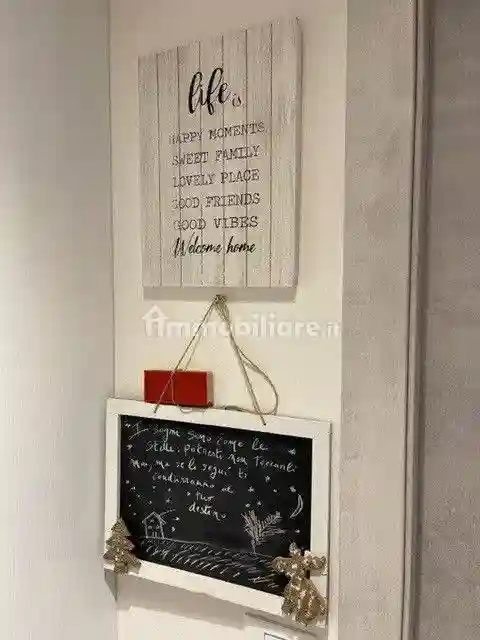 life is
HAPPY MOMENTS
SWEET FAMILY
LOVELY PLACE
GOOD FRIENDS
GOOD VIBES
Welcome home
immobiliare.it
I sogni sono come le
stelle: potresti non toccarli
mai, ma se li segui ti
condurranno al
tuo
destino